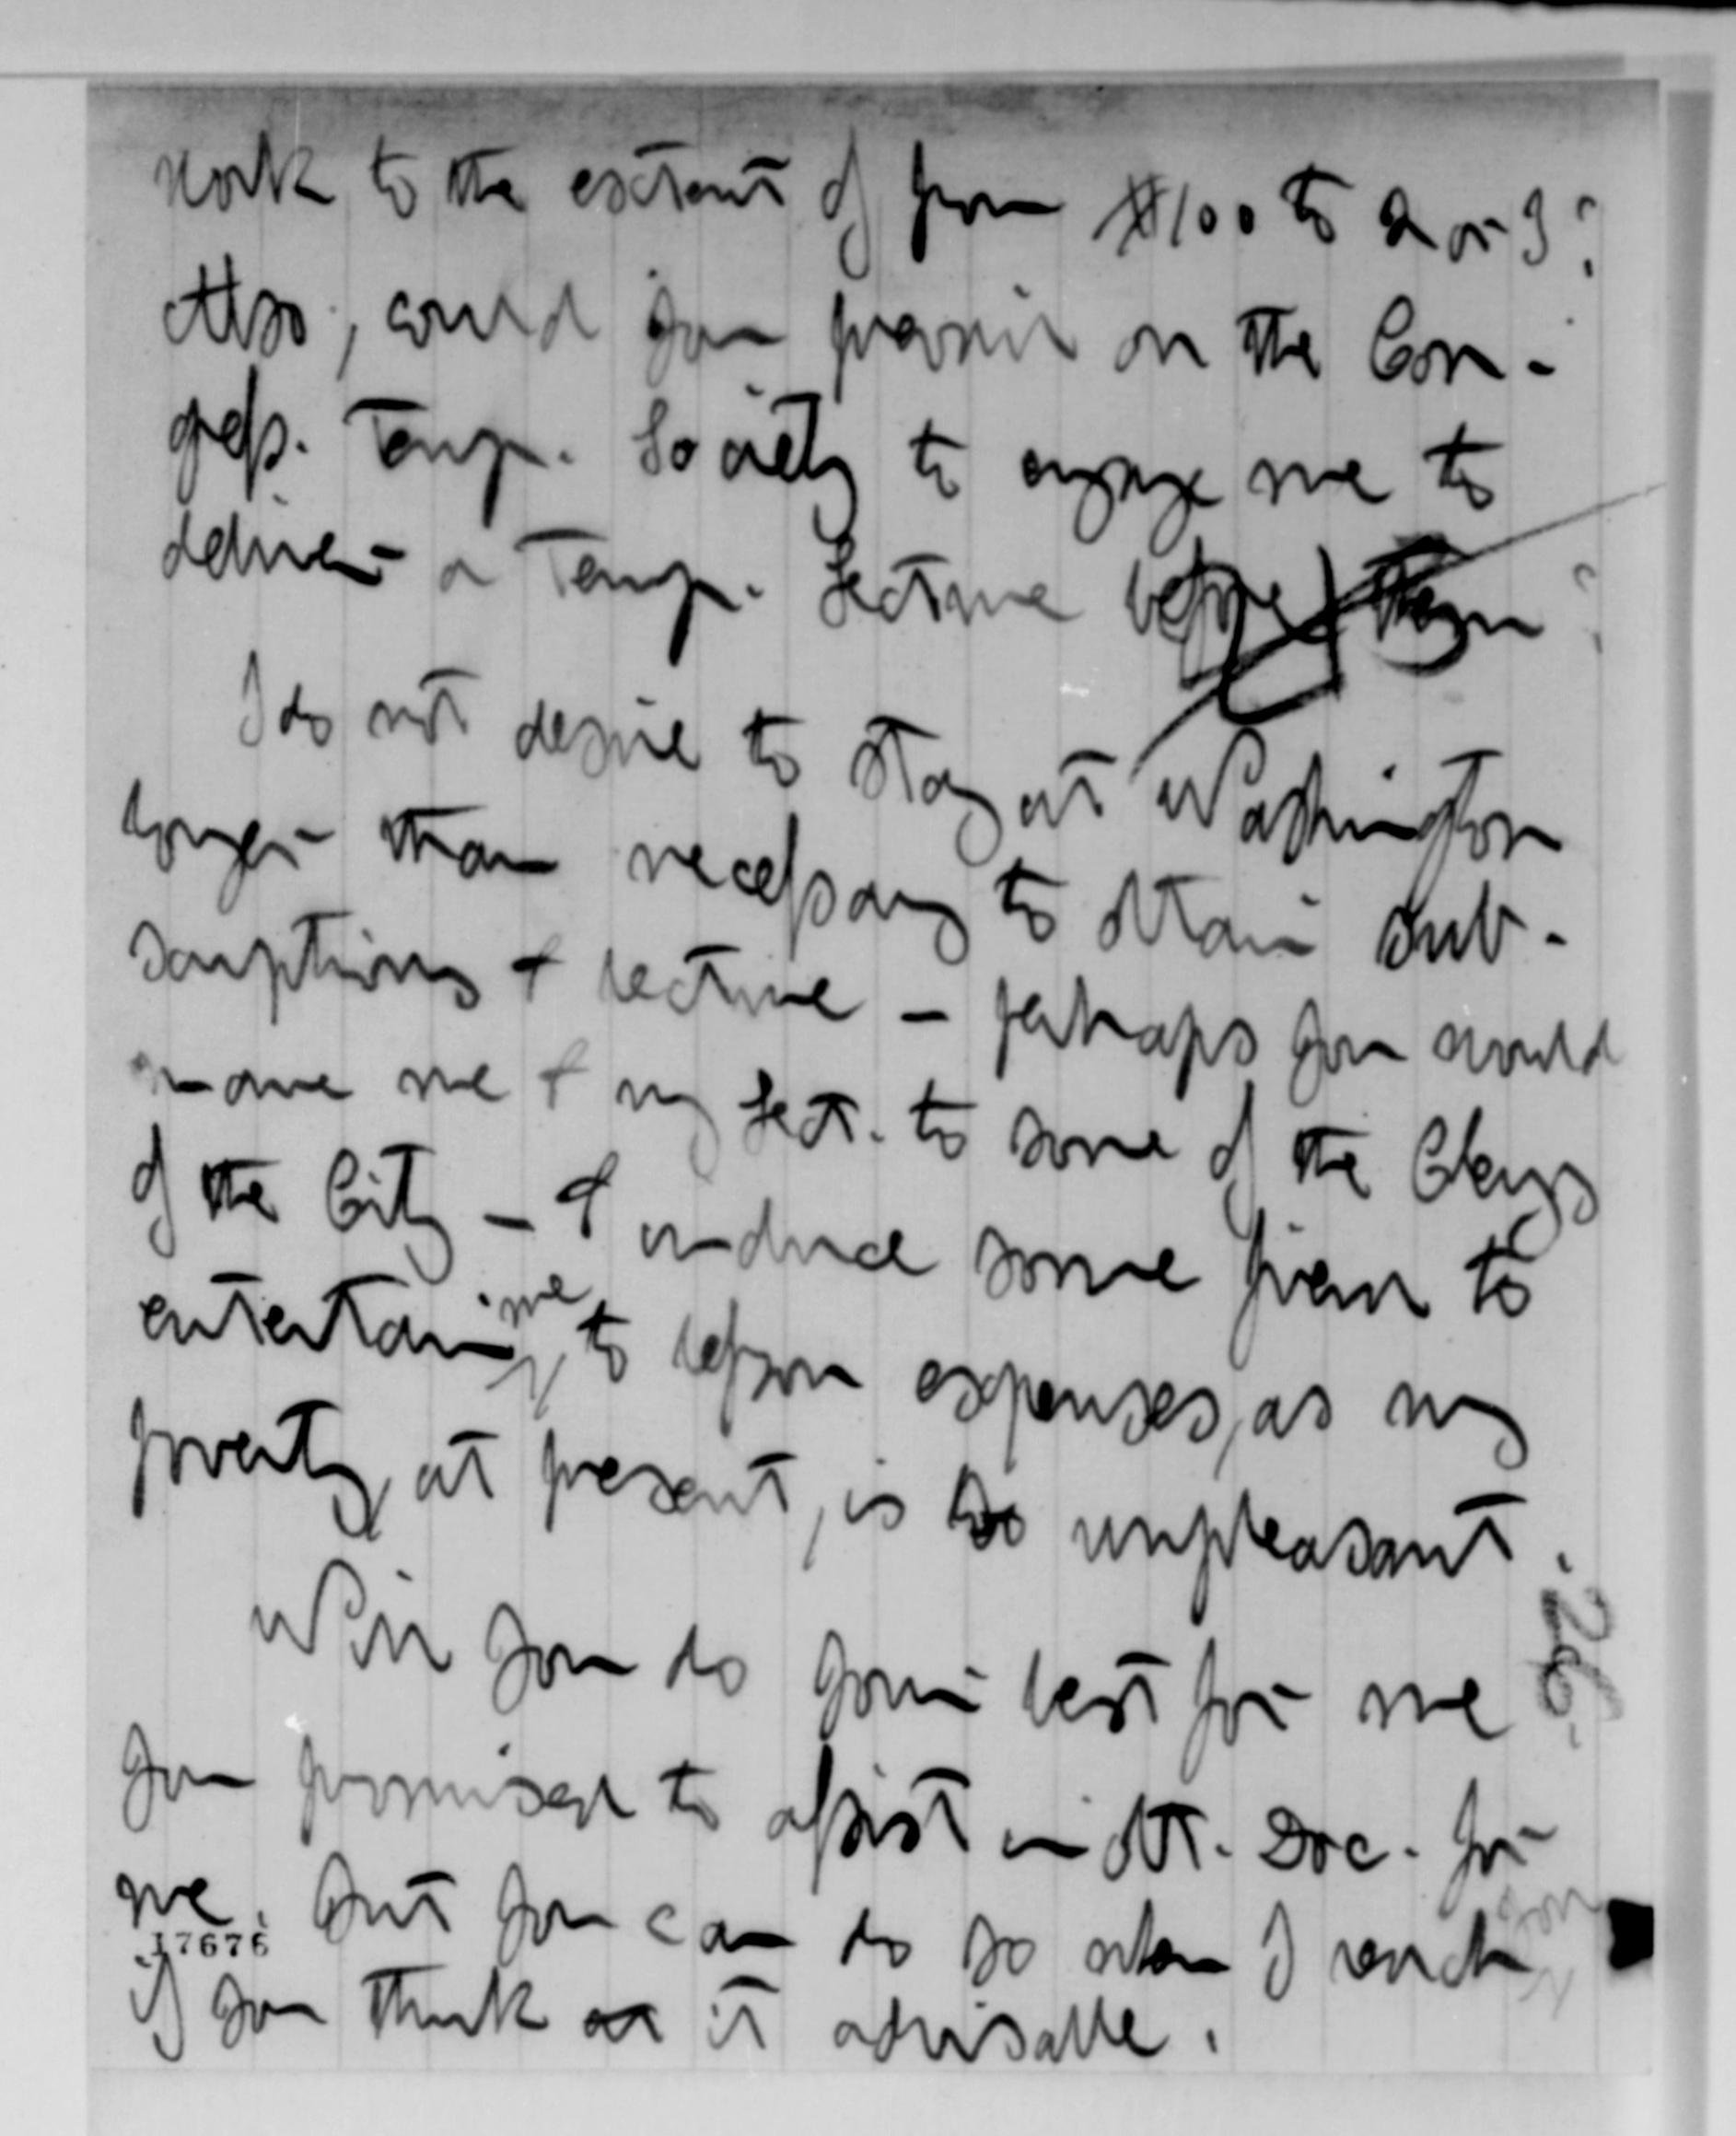 work to the extent of from $100 to 2 or 3?
Also, could you prevail on the Con-
gress. Temp. Society to engage me to
deliver a Temp. Lecture before them?
I do not desire to stay at Washington
longer than necessary to obtain sub-
scriptions & lecture – perhaps you would
name me & my Lect. to some of the Clergy
of the City – & induce some friend to
entertain me to lessen expenses, as my
poverty, at present, is so unpleasant.
Will you do your best for me
You promised to assist in Doc. for
me. But you can do so when I reach you
if you think it advisable.
26
17676